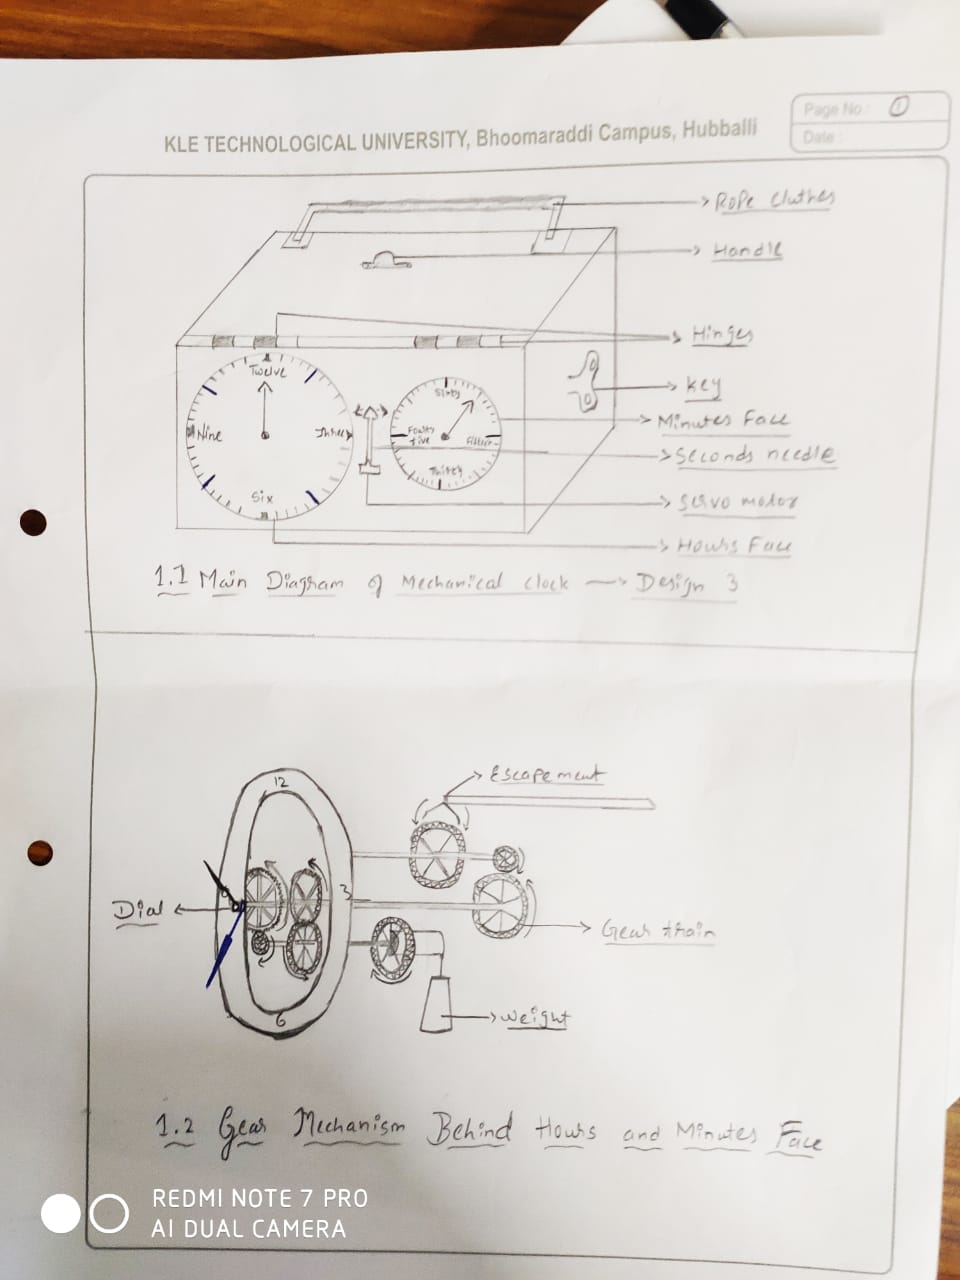 KLE TECHNOLOGICAL UNIVERSITY, Bhoomaraddi Campus, Hubballi
Page No.: 1
Date :
Rope Cluthes
Handle
Hinges
Key
Minutes Face
Seconds needle
Servo motor
Hours Face
Twelve
Three
Six
Nine
Sixty
Fifteen
Thirty
Fourty
five
1.1 Main Diagram of Mechanical clock → Design 3
Escapement
12
3
6
Dial
Gear train
Weight
1.2 Gear Mechanism Behind Hours and Minutes Face
REDMI NOTE 7 PRO
AI DUAL CAMERA